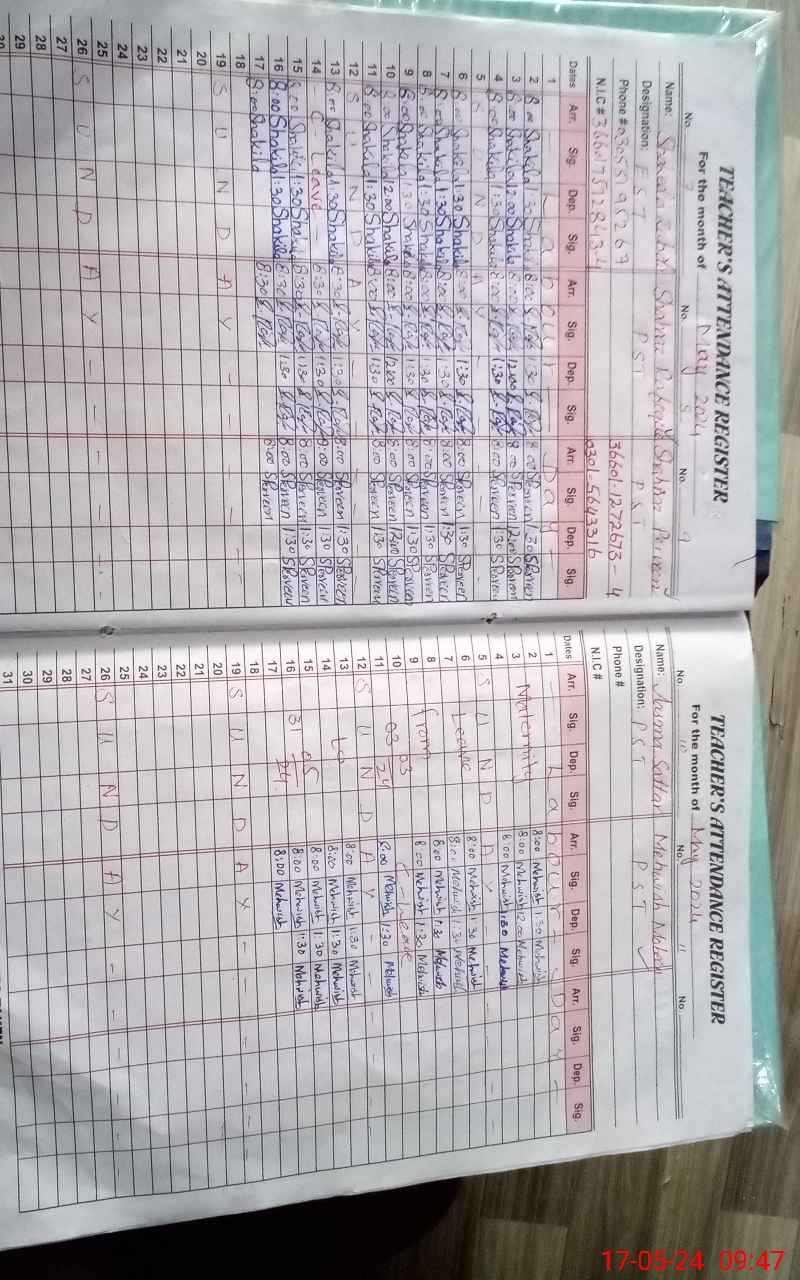 TEACHER'S ATTENDANCE REGISTER
For the month of May 2024
No. 7 No. 8 No. 9
Name: Shahnaz Parveen
Designation: EST PST PST
Phone # 36601-1272673-4
N.I.C # 0301-5643316
Dates Arr. Sig. Dep. Sig. Arr. Sig. Dep. Sig. Arr. Sig. Dep. Sig.
1 - Labour - Day -
2 8:00 Shakila 1:30 8:00 1:30 8:00 SParveen 1:30 SParveen
3 8:00 Shakila 12:00 Shakila 8:00 12:00 8:00 SParveen 12:00 SParveen
4 8:00 Shakila 1:30 Shakila 8:00 1:30 8:00 SParveen 1:30 SParveen
5 SUNDAY - - -
6 8:00 Shakila 1:30 Shakila 8:00 1:30 8:00 SParveen 1:30 SParveen
7 8:00 Shakila 1:30 Shakila 8:00 1:30 8:00 SParveen 1:30 SParveen
8 8:00 Shakila 1:30 Shakila 8:00 1:30 8:00 SParveen 1:30 SParveen
9 8:00 Shakila 1:30 Shakila 8:00 1:30 8:00 SParveen 1:30 SParveen
10 8:00 Shakila 12:00 Shakila 8:00 12:00 8:00 SParveen 12:00 SParveen
11 8:00 Shakila 1:30 Shakila 8:00 1:30 8:00 SParveen 1:30 SParveen
12 SUNDAY - - -
13 8:00 Shakila 1:30 Shakila 8:30 1:30 8:00 SParveen 1:30 SParveen
14 C-Leave - 8:30 1:30 8:00 SParveen 1:30 SParveen
15 8:00 Shakila 1:30 Shakila 8:30 1:30 8:00 SParveen 1:30 SParveen
16 8:00 Shakila 1:30 Shakila 8:30 1:30 8:00 SParveen 1:30 SParveen
17 8:00 Shakila 8:30 8:00 SParveen
18
19 SUNDAY - - -
20
21
22
23
24
25
26 SUNDAY - - -
27
28
29
30
TEACHER'S ATTENDANCE REGISTER
For the month of May 2024
No. 10 No. 11 No.
Name: Asma Sattar Mehwish
Designation: PST PST
Phone #
N.I.C #
Dates Arr. Sig. Dep. Sig. Arr. Sig. Dep. Sig. Arr. Sig. Dep. Sig.
1 - Labour - Day -
2 8:00 Mehwish 1:30 Mehwish
3 Maternity 8:00 Mehwish 12:00 Mehwish
4 8:00 Mehwish 1:30 Mehwish
5 SUNDAY - - -
6 Leave 8:00 Mehwish 1:30 Mehwish
7 8:00 Mehwish 1:30 Mehwish
8 from 8:00 Mehwish 1:30 Mehwish
9 8:00 Mehwish 1:30 Mehwish
10 03 03 24 C-Leave
11 8:00 Mehwish 1:30 Mehwish
12 SUNDAY - - -
13 to 8:00 Mehwish 1:30 Mehwish
14 8:00 Mehwish 1:30 Mehwish
15 31 05 24 8:00 Mehwish 1:30 Mehwish
16 8:00 Mehwish 1:30 Mehwish
17 8:00 Mehwish
18
19 SUNDAY - - -
20
21
22
23
24
25
26 SUNDAY - - -
27
28
29
30
31
17-05-24 09:47